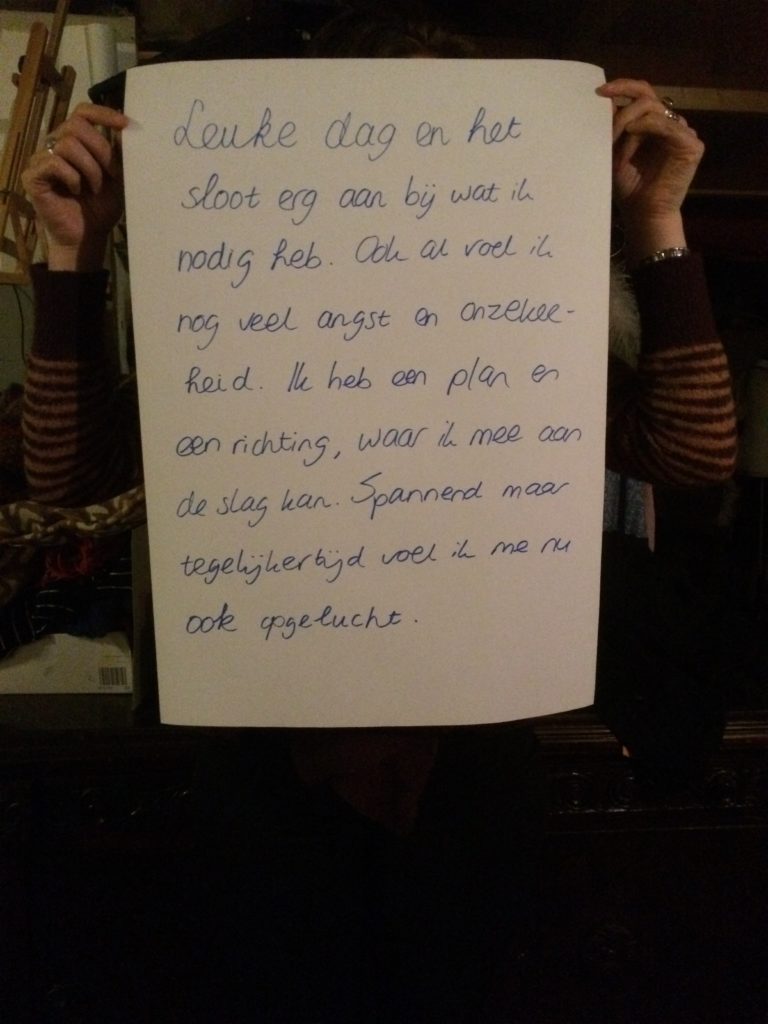 Leuke dag en het
sloot erg aan bij wat ik
nodig heb. Ook al voel ik
nog veel angst en onzekee-
heid. Ik heb een plan en
een richting, waar ik mee aan
de slag kan. Spannend maar
tegelijkertijd voel ik me nu
ook opgelucht.